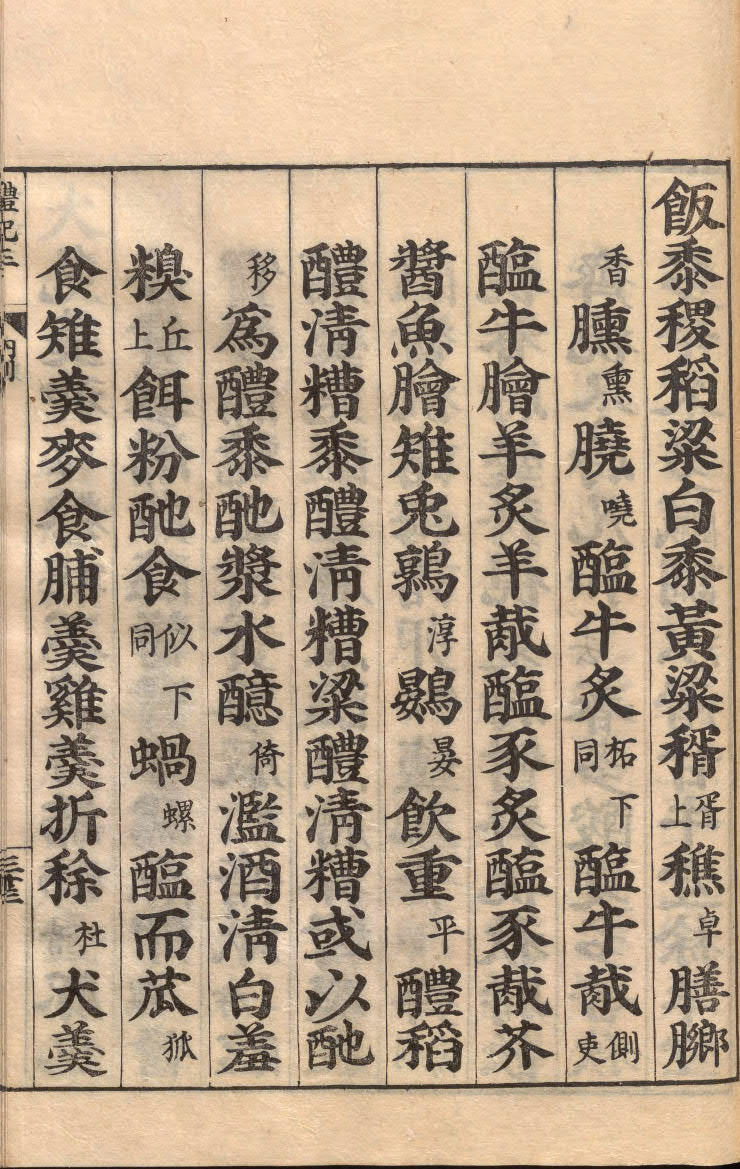 飯黍稷稻粱白黍黃粱稰胥上穛卓膳膷
香臐熏膮嘵醢牛炙柘下同醢牛胾側吏
醢牛膾羊炙羊胾醢豕炙醢豕胾芥
醬魚膾雉兔鶉淳鷃晏飲重平醴稻
醴清糟黍醴清糟粱醴清糟或以酏
移為醴黍酏漿水醷倚濫酒清白羞
糗丘上餌粉酏食似下同蝸螺醢而苽狐
食雉羹麥食脯羹雞羹折稌杜犬羹
禮記三